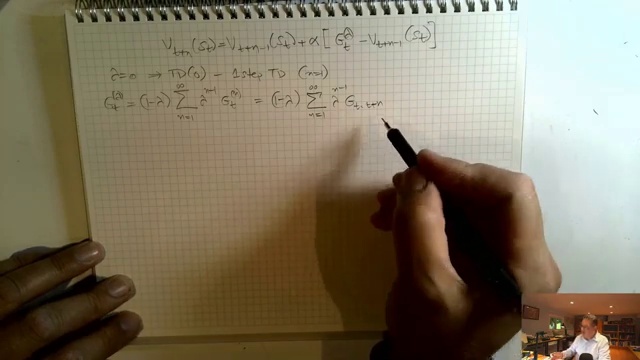 V_{t+n}(S_t) = V_{t+n-1}(S_t) + α[G_t^{(λ)} - V_{t+n-1}(S_t)]
λ=0 ⇒ TD(0) - 1 step TD (n=1)
G_t^{(λ)} = (1-λ) ∑_{n=1}^{∞} λ^{n-1} G_t^{(n)} = (1-λ) ∑_{n=1}^{∞} λ^{n-1} G_{t:t+n}